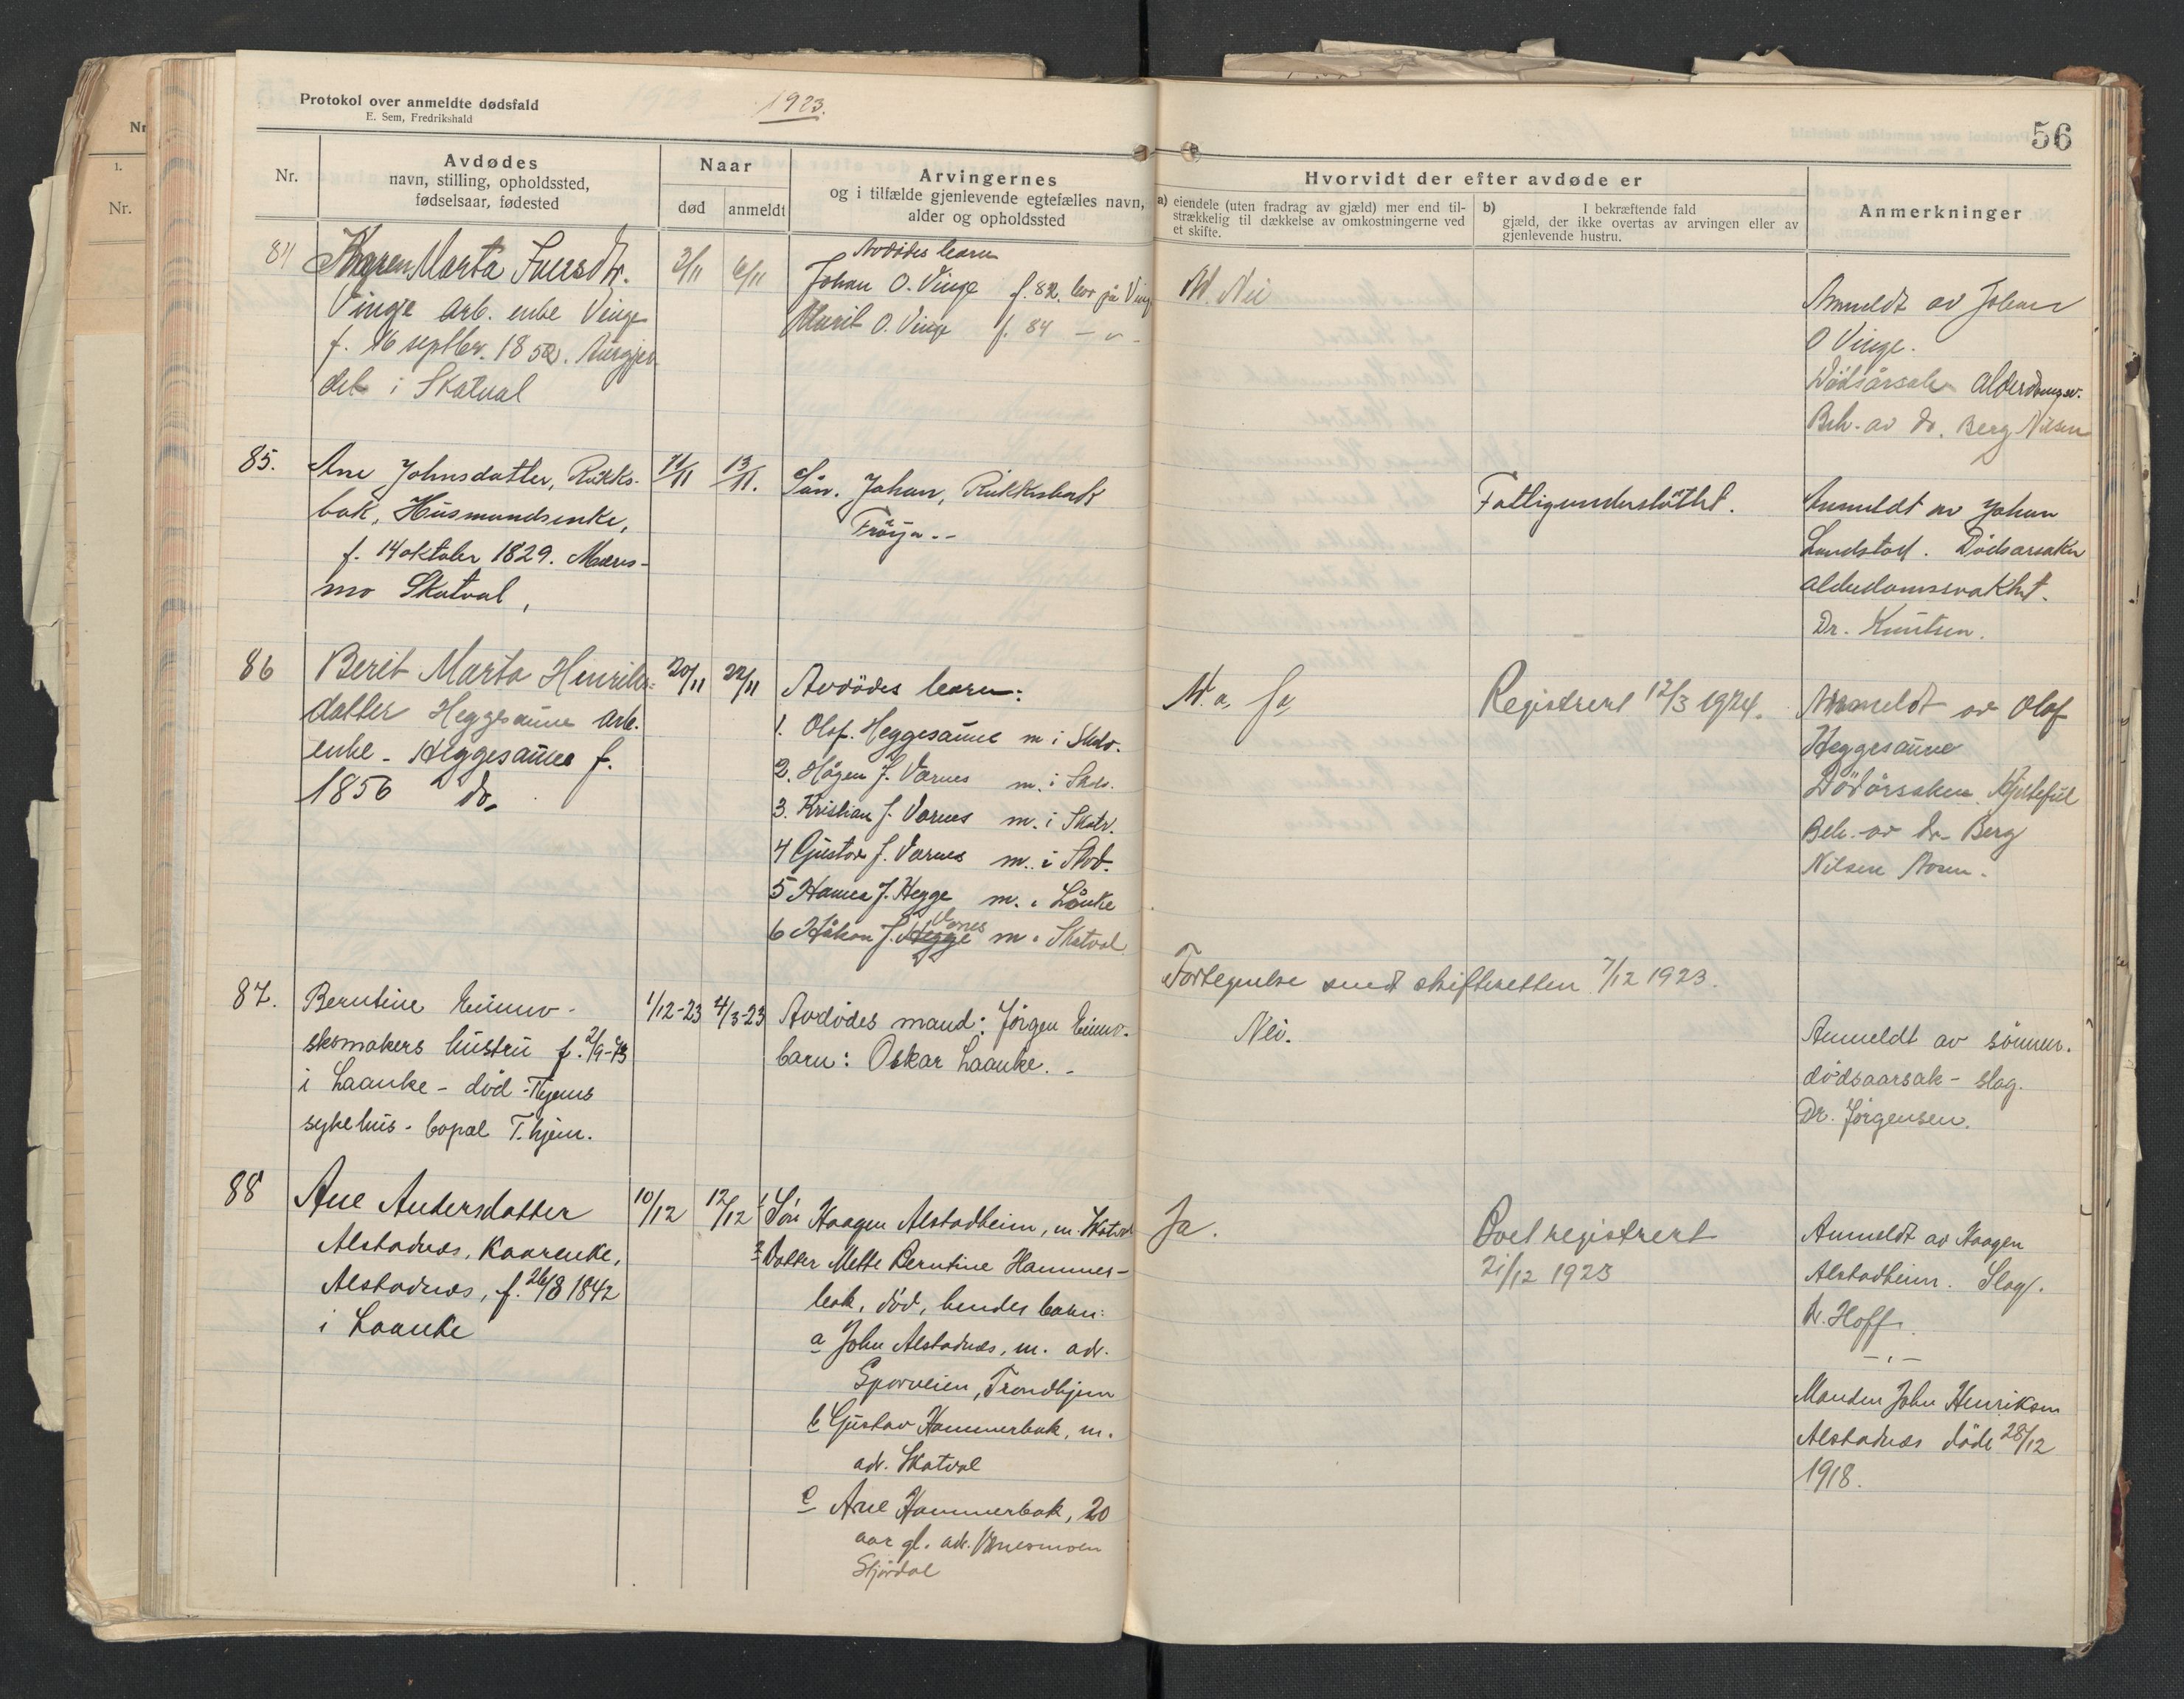 Protokol over anmeldte dødsfald
E. Sem, Fredrikshald
1923.
56
Nr.
Avdødes
navn, stilling, opholdssted,
fødselsaar, fødested
Naar
død
anmeldt
Arvingernes
og i tilfælde gjenlevende egtefælles navn,
alder og opholdssted
Hvorvidt der efter avdøde er
a) eiendele (uten fradrag av gjæld) mer end til-
strækkelig til dækkelse av omkostningerne ved
et skifte.
b) I bekræftende fald
gjæld, der ikke overtas av arvingen eller av
gjenlevende hustru.
Anmerkninger
Nr
1.
Nr.
84
Karen Marta Iversdtr.
Vinge arb. enke Vinge
f. 16 septbr. 1852.
det i Skatval
3/11
6/11
Avdødes barn
Johan O. Vinge f. 82. bor på Vinge
Marit O. Vinge f. 84 — " -
Nei
Anmeldt av Johan
O Vinge.
Dødsårsak alderdomssv.
Beh. av dr. Berg Nilsen
85.
Ane Johnsdatter, Rükks-
bak, Hüsmandsenke,
f. 14 oktober 1829. Mæres-
mo Skatval,
11/11
13/11.
Sön. Johan, Rükksbak
Fröya.-
Fattigunderstöttet.
Anmeldt av Johan
Lundstad. Dödsarsaken
alderdomssvakhet.
Dr. Knütsen.
86
Berit Marta Henriks-
datter Heggesaune arb.
enke - Heggesaunes f.
1856 do.
20/11
22/11
Avdödes barn:
1. Olaf. Heggesaune m i Skatv.
2. Hågen J. Værnes m. i Skatv.
3. Kristian J. Værnes m. i Skatv.
4 Güstav J. Værnes m. i
5 Hanna J. Hegge m. i Lånke
6 Håkon J. Hegge Værnes m. i Skatval
a, Ja
Registrert 12/3 1924.
Anmeldt av Olaf
Heggesaune
Dödårsaken. Hjertefeil
Beh. av dr. Berg
Nilsen
Fortegnelse sendt skifteretten 7/12 1923.
87.
Berntine Einmo -
skomakers hüstrü f. 2/9-43
i Laanke - död - Thjems
sykehüs - bopæl T. hjem.
1/12-23
4/3-23
Avdödes mand: Jörgen Einmo.
barn: Oskar Laanke. -
Nei.
Anmeldt av sönnen.
dödsaarsak - slag.
Dr. Jörgensen.
88
Ane Andersdatter
Alstadnæs, Kaarenke,
Alstadnæs, f. 26/8 1842
i Laanke
10/12
12/12
1 Sön Haagen Alstadheim, m. Skatval
2 Datter Mette Berntine Hammer-
bak, död, hendes barn:
a John Alstadnæs, m. adr.
Sporveien, Trondhjem
b Güstav Hammerbak, m.
adr. Skatval
c Ane Hammerbak, 20
aar gl. adr.
Stjördal
Ja.
Boet registrert
21/12 1923
Anmeldt av Haagen
Alstadheim. Slag.
dr. Hoff.
— " —
Manden John Henriksen
Alstadnæs döde 28/12
1918.